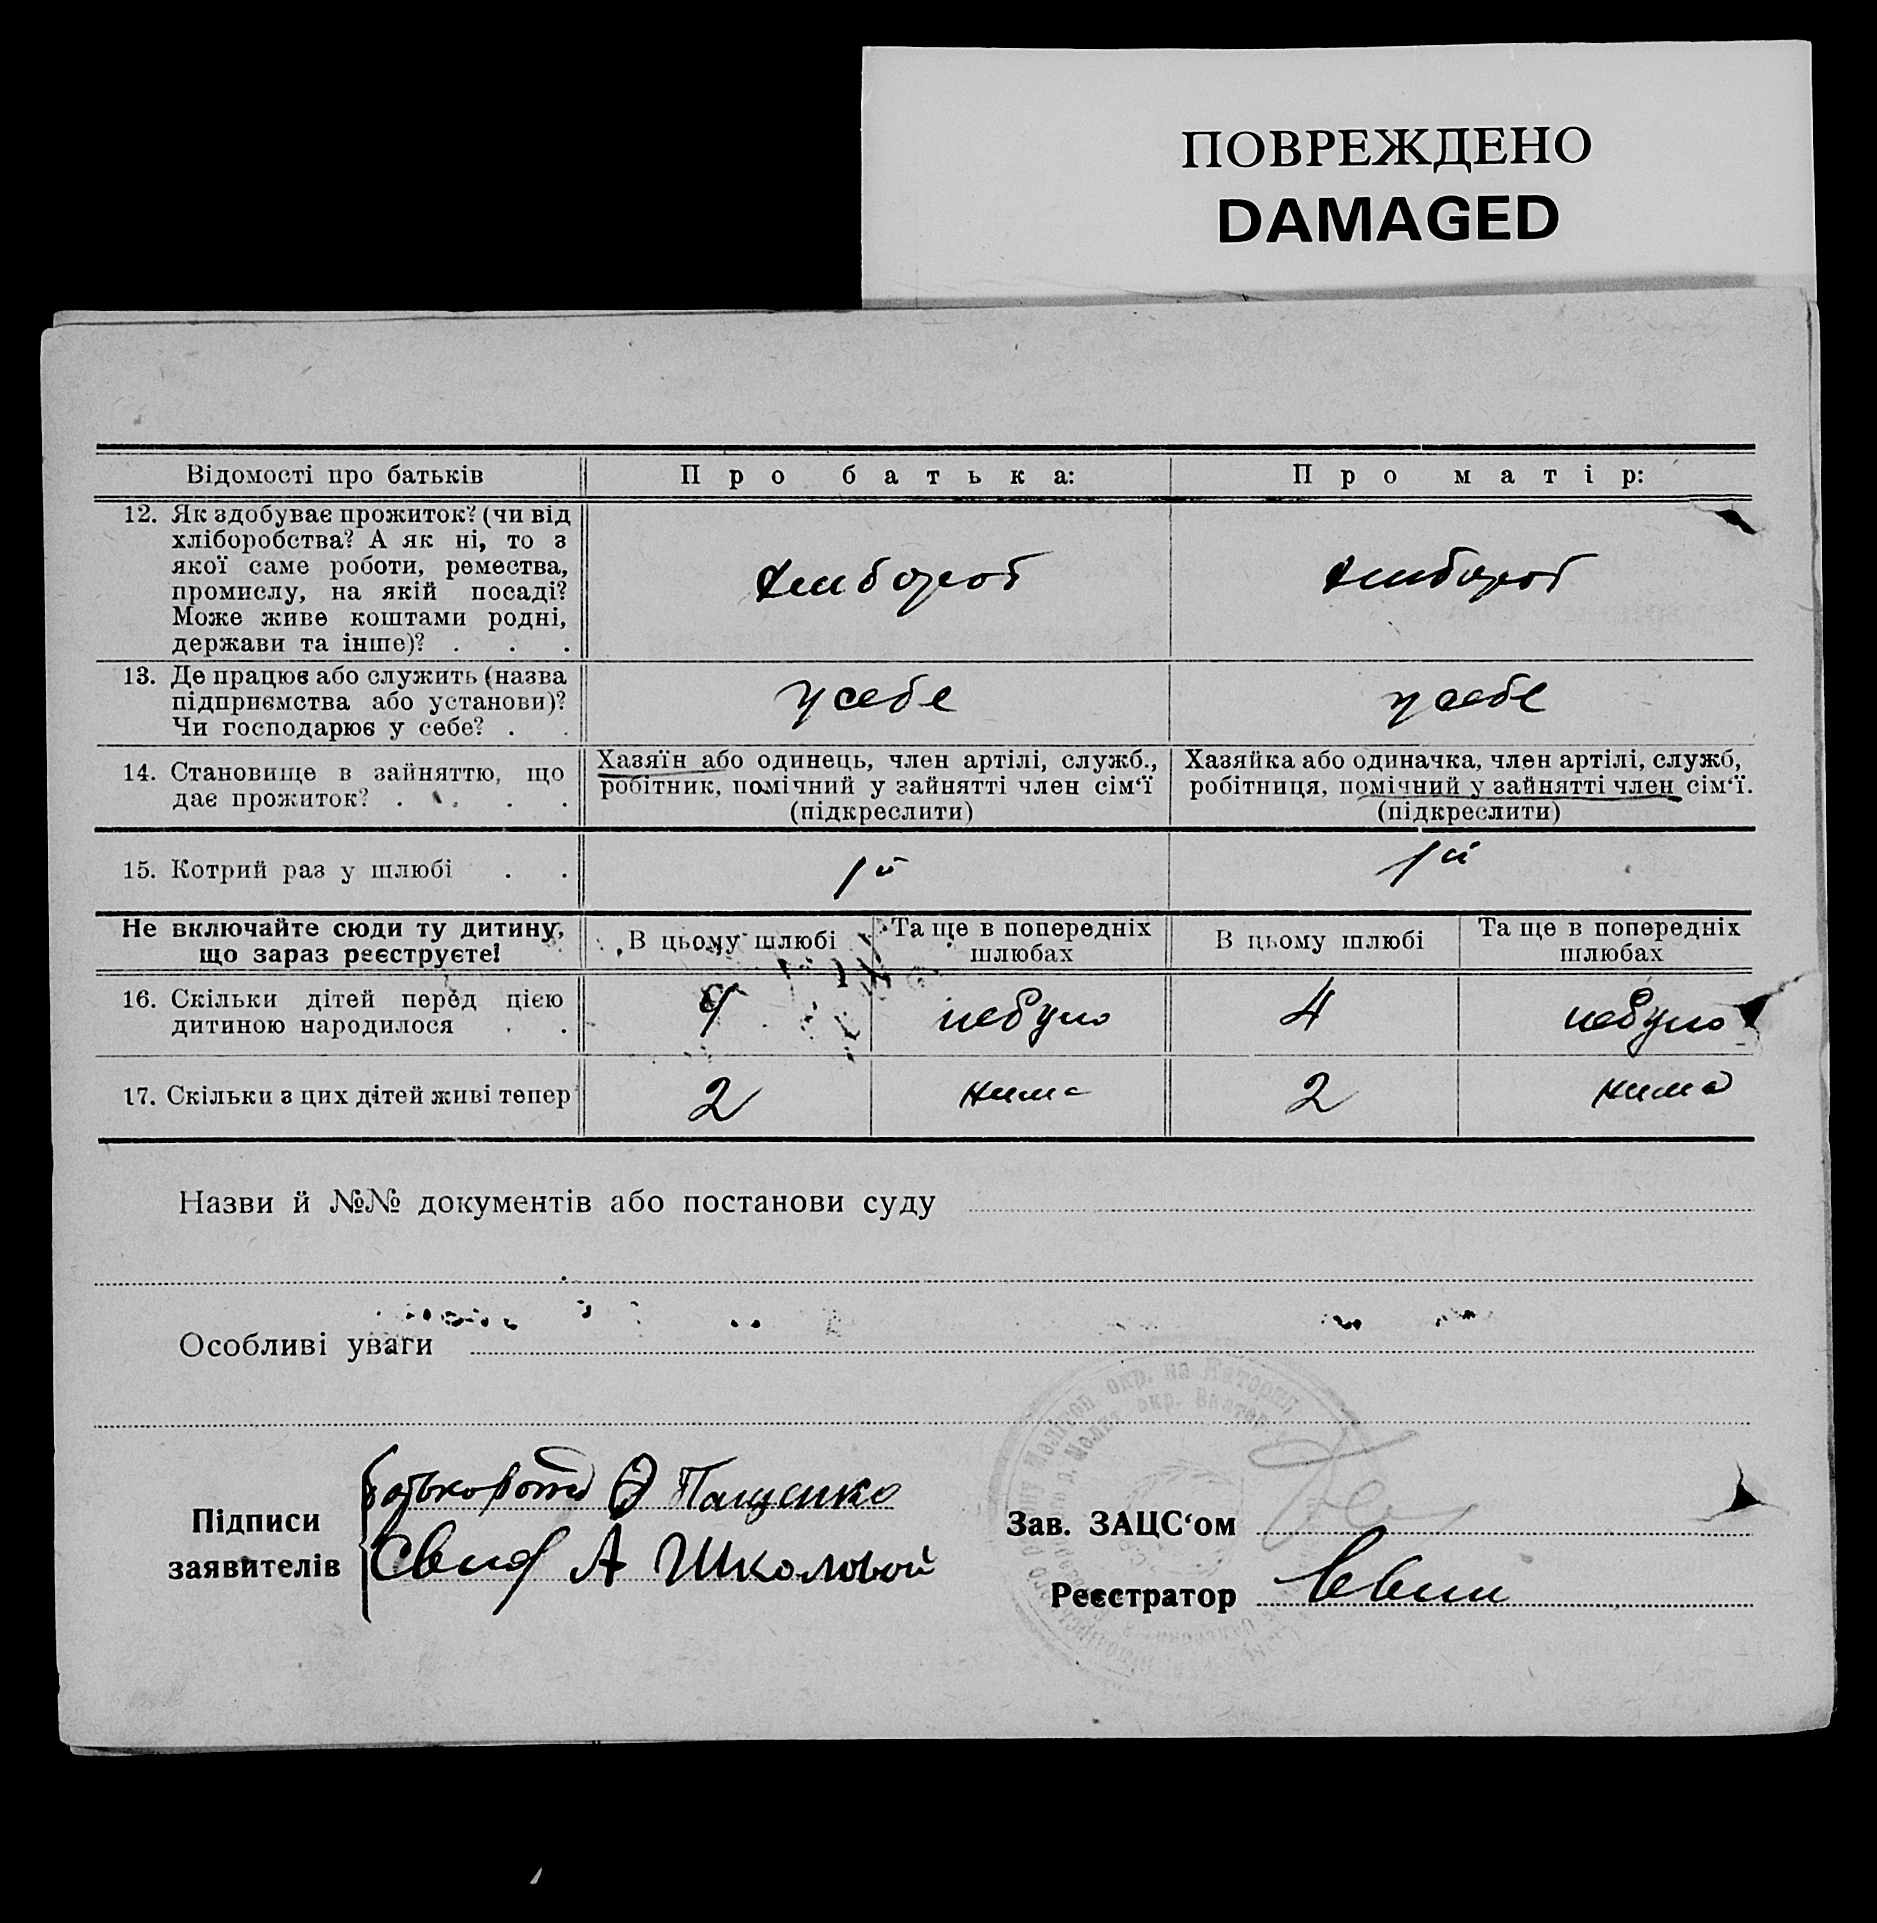 ПОВРЕЖДЕНО
DAMAGED
Відомості про батьків
Про батька:
Про матір:
12. Як здобуває прожиток? (чи від
хліборобства? А як ні, то з
якої саме роботи, ремества,
промислу, на якій посаді?
Може живе коштами родні,
держави та інше)? . . .
хлибороб
хлибороб
13. Де працює або служить (назва
підприємства або установи)?
Чи господарює у себе? . .
у себе
у себе
14. Становище в зайняттю, що
дає прожиток? . . . .
Хазяїн або одинець, член артілі, служб.,
робітник, помічний у зайнятті член сім‘ї
(підкреслити)
Хазяйка або одиначка, член артілі, служб,
робітниця, помічний у зайнятті член сім‘ї.
(підкреслити)
15. Котрий раз у шлюбі . .
1й
1й
Не включайте сюди ту дитину,
що зараз реєструєте!
В цьому шлюбі
Та ще в попередніх
шлюбах
В цьому шлюбі
Та ще в попередніх
шлюбах
16. Скільки дітей перед цією
дитиною народилося . .
4
небуло
4
небуло
17. Скільки з цих дітей живі тепер
2
нима
2
нима
Назви й №№ документів або постанови суду
Особливі уваги
Підписи
заявителів
Пащенко
А Школовой
Зав. ЗАЦС‘ом
Реєстратор